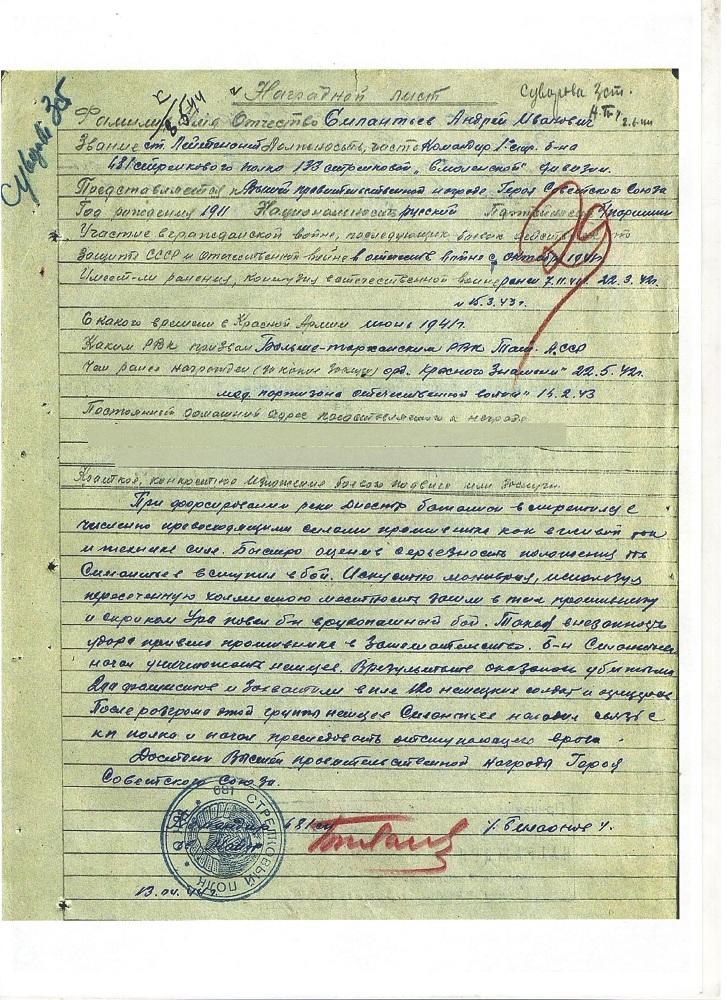 Суворова 3 ст.
Наградной лист
Фамилия Имя Отчество Силантьев Андрей Иванович
Звание ст. лейтенант Должность, часть Командир 1 стр. б-на
681 стрелкового полка 133 стрелковой „Смоленской" дивизии.
Представляется к Высшей правительственной награде Героя Советского Союза
Год рождения 1911 Национальность русский Партийность
Участие в гражданской войне, последующих боевых действиях по
защите СССР и отечественной войне в отечеств. войне с октября 1941г.
Имеет-ли ранения, контузии в отечественной войне ранен 7.11.41г. 22.3.42г.
и 15.3.43г.
С какого времени в Красной Армии июнь 1941г.
Каким РВК призван Больше-тарханским РВК Тат. АССР
Чем ранее награжден (за какие заслуги) орд. Красного Знамени" 22.5.42г.
мед. партизана отечественной войны" 14.2.43
Постоянный домашний адрес представляемого к награде
Краткое, конкретное изложение боевого подвига или заслуги
При форсировании реки Днестр батальон встретился с
численно превосходящими силами противника как в живой так
и технике силе. Быстро оценив серьезность положения
Силантьев вступил в бой. Искустно маневрируя, используя
пересеченную холмистую местность зашли в тыл противнику
и с криком Ура повел б-н врукопашный бой. Такая внезапность
удара привела противника в замешательство. Б-н Силантьева
начал уничтожать немцев. В результате оказалось убитыми
фашистов и захватили в плен немецких солдат и офицеров.
После розгрома этой группы немцев Силантьев наладил связь с
кп полка и начал преследовать отступающего врага.
Достоин Высшей правительственной награды Герой
Советского Союза.
Командир 681 сп
681 СТРЕЛКОВЫЙ ПОЛК
13.04.44г.